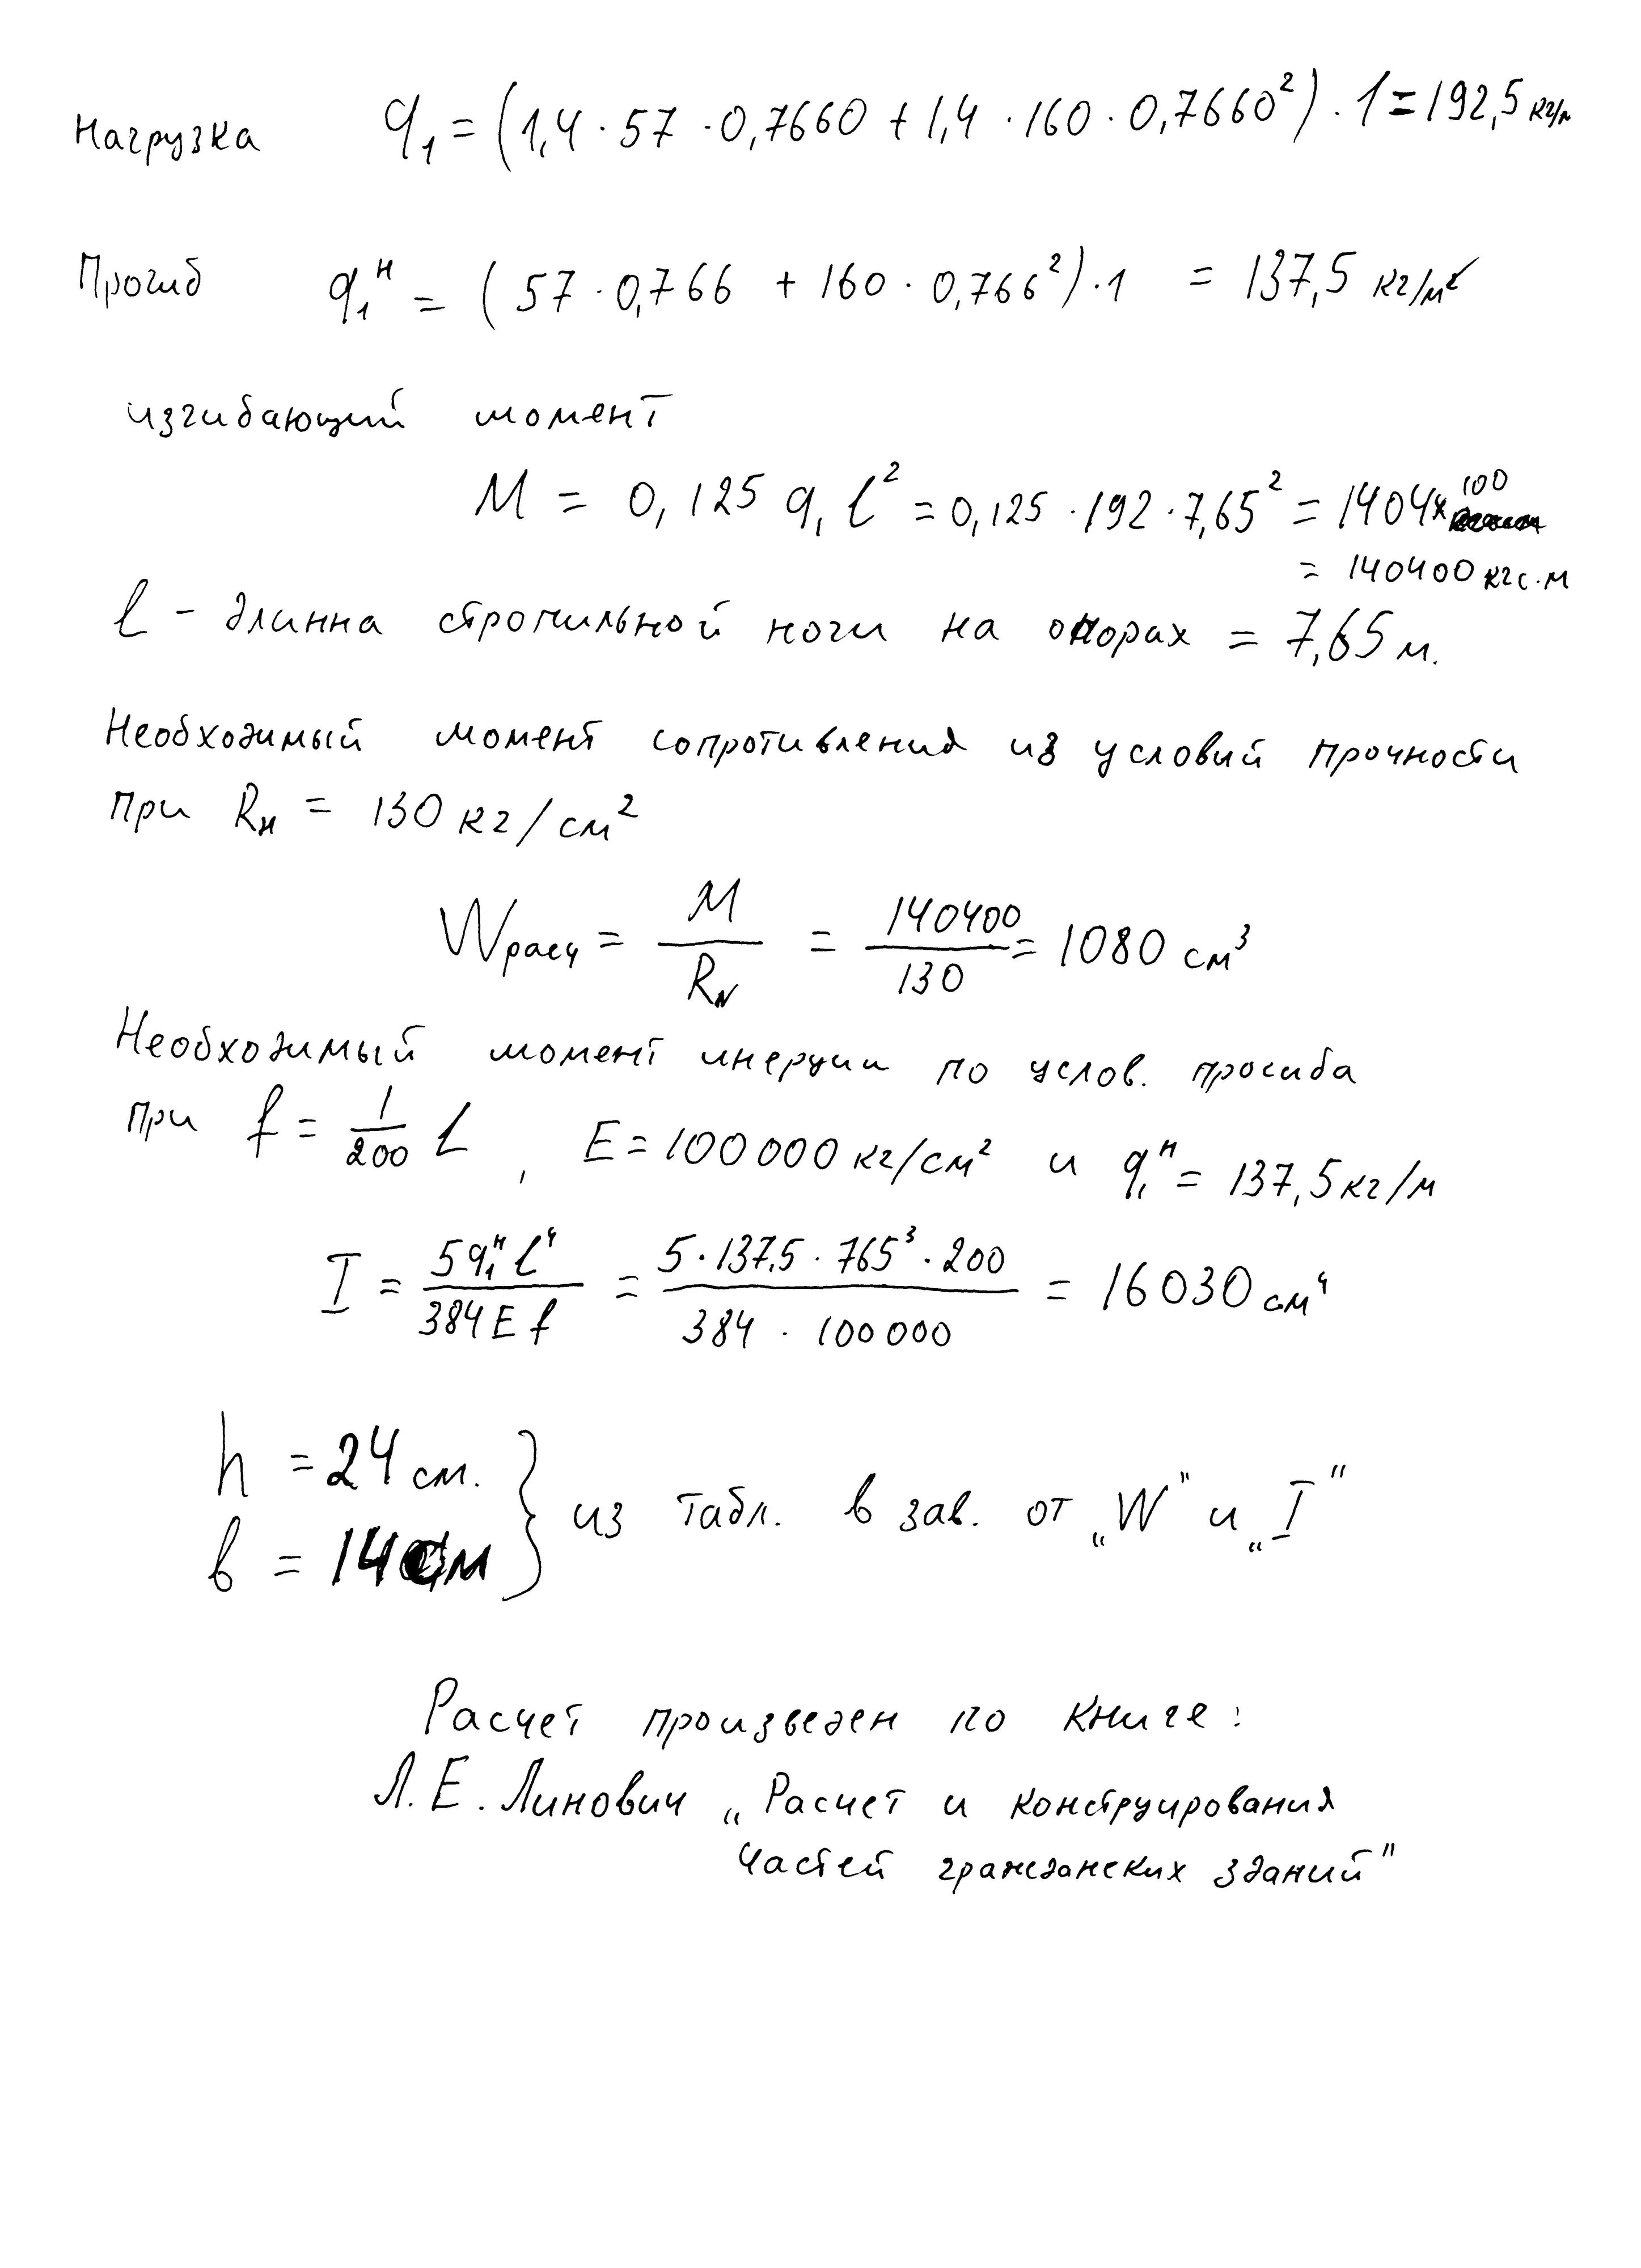 Нагрузка q₁ = (1,4 · 57 · 0,7660 + 1,4 · 160 · 0,7660²) · 1 = 192,5 кг/м
Прогиб q₁ᴴ = (57 · 0,766 + 160 · 0,766²) · 1 = 137,5 кг/м²
изгибающий момент
M = 0,125 q₁ l² = 0,125 · 192 · 7,65² = 1404 × 100
= 140400 кгс·м
l – длинна стропильной ноги на опорах = 7,65 м.
Необходимый момент сопротивления из условий прочности
при Rн = 130 кг/см²
Wрасч = M / Rн = 140400 / 130 = 1080 см³
Необходимый момент инерции по услов. прогиба
при f = 1/200 L, E = 100000 кг/см² и q₁ᴴ = 137,5 кг/м
I = 5 q₁ᴴ l⁴ / 384 E f = 5 · 137,5 · 765³ · 200 / 384 · 100000 = 16030 см⁴
h = 24 см.
в = 14 см
} из табл. в зав. от „W" и „I"
Расчет произведен по книге:
Л.Е. Линович „Расчет и конструирования
частей гражданских зданий"